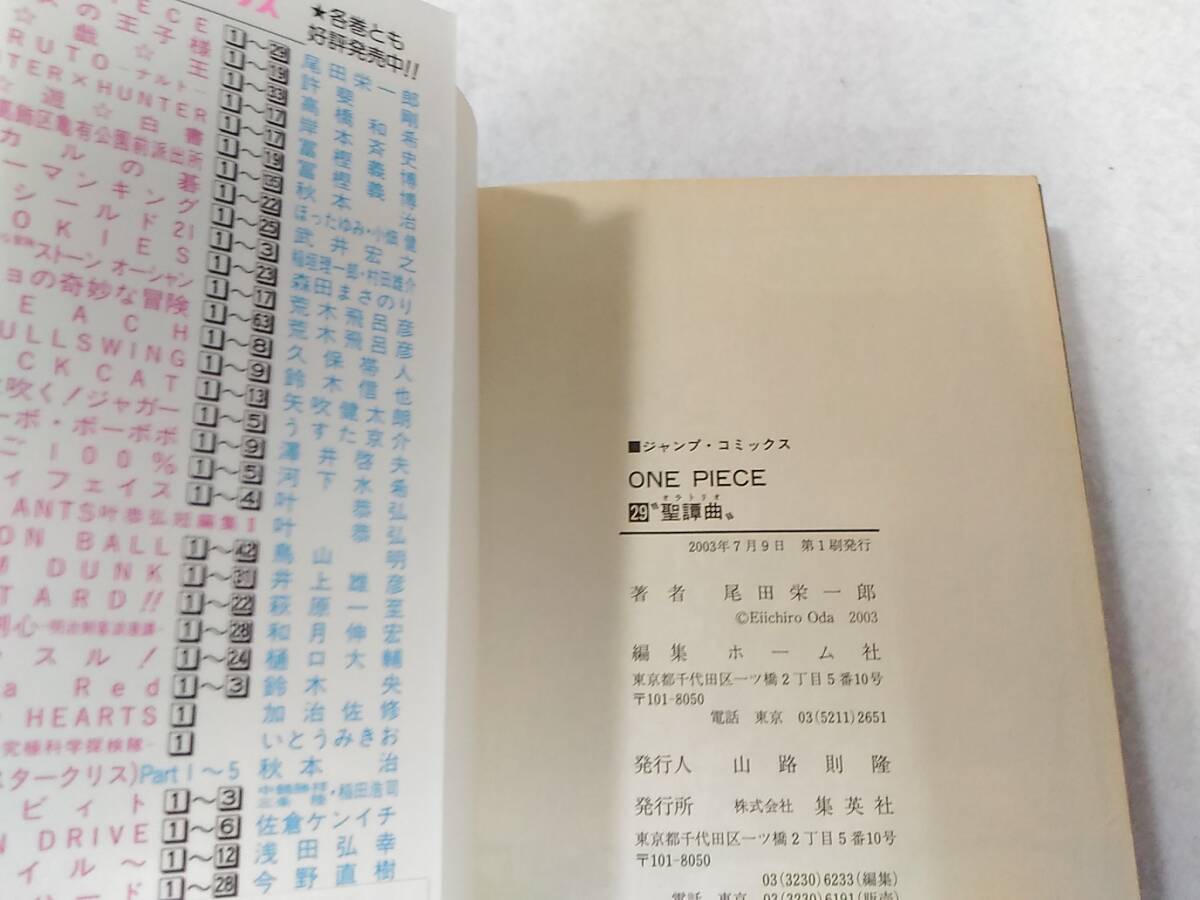 ★各巻とも
好評発売中!!
ECE 1〜29 尾田栄一郎
の王子様 1〜19 許斐剛
戯☆王 1〜33 高橋和希
RUTO―ナルト― 1〜17 岸本斉史
TER×HUNTER 1〜17 冨樫義博
☆遊☆白書 1〜19 冨樫義博
葛飾区亀有公園前派出所 1〜135 秋本治
カルの碁 1〜22 ほったゆみ・小畑健
ーマンキング 1〜25 武井宏之
シールド21 1〜3 稲垣理一郎・村田雄介
OKIES 1〜23 森田まさのり
ストーン オーシャン 1〜17 荒木飛呂彦
ョの奇妙な冒険 1〜63 荒木飛呂彦
EACH 1〜8 久保帯人
ULLSWING 1〜9 鈴木信也
CKCAT 1〜13 矢吹健太朗
吹く!ジャガー 1〜5 うすた京介
ーボ・ボーボボ 1〜9 澤井啓夫
ご100% 1〜5 河下水希
ィフェイス 1〜4 叶恭弘
ANTS叶恭弘短編集I 叶恭弘
ON BALL 1〜42 鳥山明
M DUNK 1〜31 井上雄彦
TARD!! 1〜22 萩原一至
剣心―明治剣客浪漫譚― 1〜28 和月伸宏
スル! 1〜24 樋口大輔
a Red 1〜3 鈴木央
HEARTS 1 加治佐修
究極科学探検隊― 1 いとうみきお
スタークリス)Part1〜5 秋本治
ビィト 1〜3 三条陸・稲田浩司
N DRIVE 1〜6 佐倉ケンイチ
イル〜 1〜12 浅田弘幸
ード 1〜28 今野直樹
■ジャンプ・コミックス
ONE PIECE
オラトリオ
29〝聖譚曲〟
2003年7月9日 第1刷発行
著者 尾田栄一郎
©Eiichiro Oda 2003
編集 ホーム社
東京都千代田区一ツ橋2丁目5番10号
〒101-8050
電話 東京 03(5211)2651
発行人 山路則隆
発行所 株式会社 集英社
東京都千代田区一ツ橋2丁目5番10号
〒101-8050
03(3230)6233(編集)
電話 東京 03(3230)6191(販売)